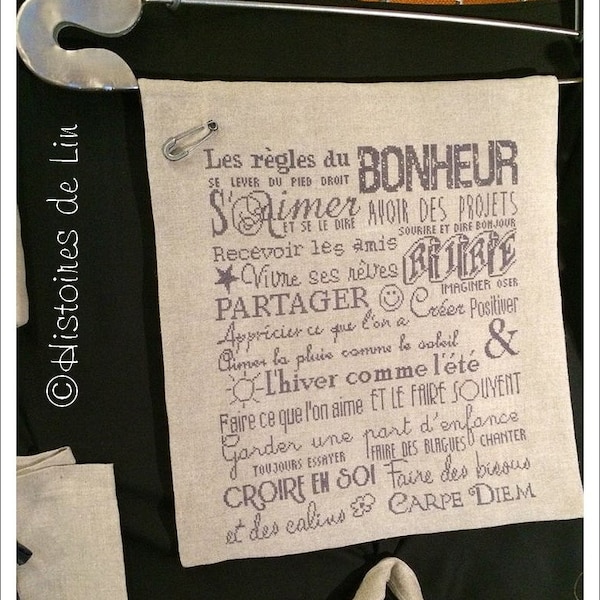 Les règles du BONHEUR
SE LEVER DU PIED DROIT
S'Aimer ET SE LE DIRE AVOIR DES PROJETS
SOURIRE ET DIRE BONJOUR
Recevoir les amis
Vivre ses rêves RIRE
IMAGINER OSER
PARTAGER Créer Positiver
Apprécier ce que l'on a
Aimer la pluie comme le soleil &
L'hiver comme l'été
Faire ce que l'on aime ET LE FAIRE SOUVENT
Garder une part d'enfance
TOUJOURS ESSAYER FAIRE DES BLAGUES CHANTER
CROIRE EN SOI Faire des bisous
et des calins CARPE DIEM
©Histoires de Lin